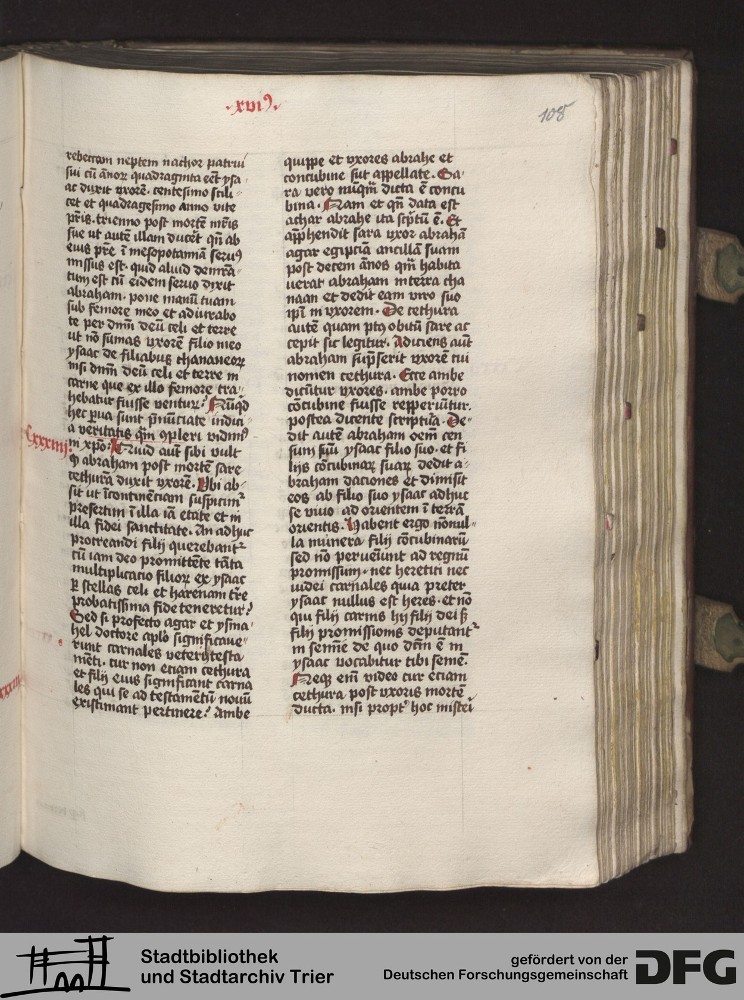 ·xvi⁹·
108
rebeccam neptem nachor patrui
sui cū ānoꝝ quadraginta eēt ysa-
ac duxit vxorē. centesimo scili-
cet et quadragesimo anno vite
p̄ris. trienno post mortē m̄ris
sue ut autē illam ducēt qn̄ ab
eius pr̄e ī mesopotamiā seruꝰ
missus est. quid aliud demr̄a-
tum est cū eidem seruo dixit
abraham. pone manū tuam
sub femore meo et adiurabo
te per dnm̄ deū celi et terre
ut nō sumas vxorē filio meo
ysaac de filiabus chananeoꝝ
nisi dnm̄ deū celi et terre in
carne que ex illo femore tra-
hebatur fuisse venturū? Nūqd
hec parua sunt p̄nūciate indici-
a veritatis qm̄ ꝯpleri vidmꝰ
in xpō. Quid aut̄ sibi vult
Cxxxiiij
ꝙ abraham post mortē sare
cethurā duxit vxorē. Vbi ab-
sit ut īcontinēciam suspicmr̄
presertim ī illa iā etate et in
illa fidei sanctitate. An adhuc
procreandi filij querebantᷣ
cū iam deo promittēte tāta
multiplicatio filioꝝ ex ysaac
ꝑ stellas celi et harenam tr̄e
probatissima fide teneretur?
Sed si profecto agar et ysma-
hel doctore aplō significaue-
runt carnales veteris testa-
mēti. cur non etiam cethura
et filij eius significant carna
les qui se ad testamētū nouū
existimant pertinere? Ambe
quippe et vxores abrahe et
concubine sūt appellate. Sa-
ra vero nūqm̄ dicta ē concu
bina. Nam et qn̄ data est
achar abrahe ita scp̄tū ē. Et
app̄hendit sara vxor abrahā
agar egipciā ancillā suam
post decem ānos qm̄ habita
uerat abraham in terra cha
naan et dedit eam viro suo
ip̄i in vxorem. De cethura
autē quam pꝰ obitū sare ac
cepit sic legitur. Adiciens aūt
abraham sup̄serit vxorē cui
nomen cethura. Ecce ambe
dicūtur vxores. ambe porro
cōcubine fuisse repperiūtur.
postea dicente scriptura. De-
dit autē abraham oēm cen
sum suū ysaac filio suo. et fi
lijs cōcubinaꝝ suaꝝ dedit a-
braham daciones et dimisit
eos ab filio suo ysaac adhuc
se viuo ad orientem ī terrā
orientis. Habent ergo nōnul-
la munera filij cōcubinarū
sed nō perueniūt ad regnū
promissum. nec heretici nec
iudei carnales quia preter
ysaac nullus est heres. et nō
qui filij carnis hij filij dei sꝫ
filij promissionis deputantᷣ
in semīe de quo dcm̄ ē in
ysaac vocabitur tibi semē.
Neqꝫ em̄ video cur etiam
cethura post vxoris mortē
ducta. nisi proptᷣ hoc mistei
Stadtbibliothek
und Stadtarchiv Trier
gefördert von der
Deutschen Forschungsgemeinschaft
DFG